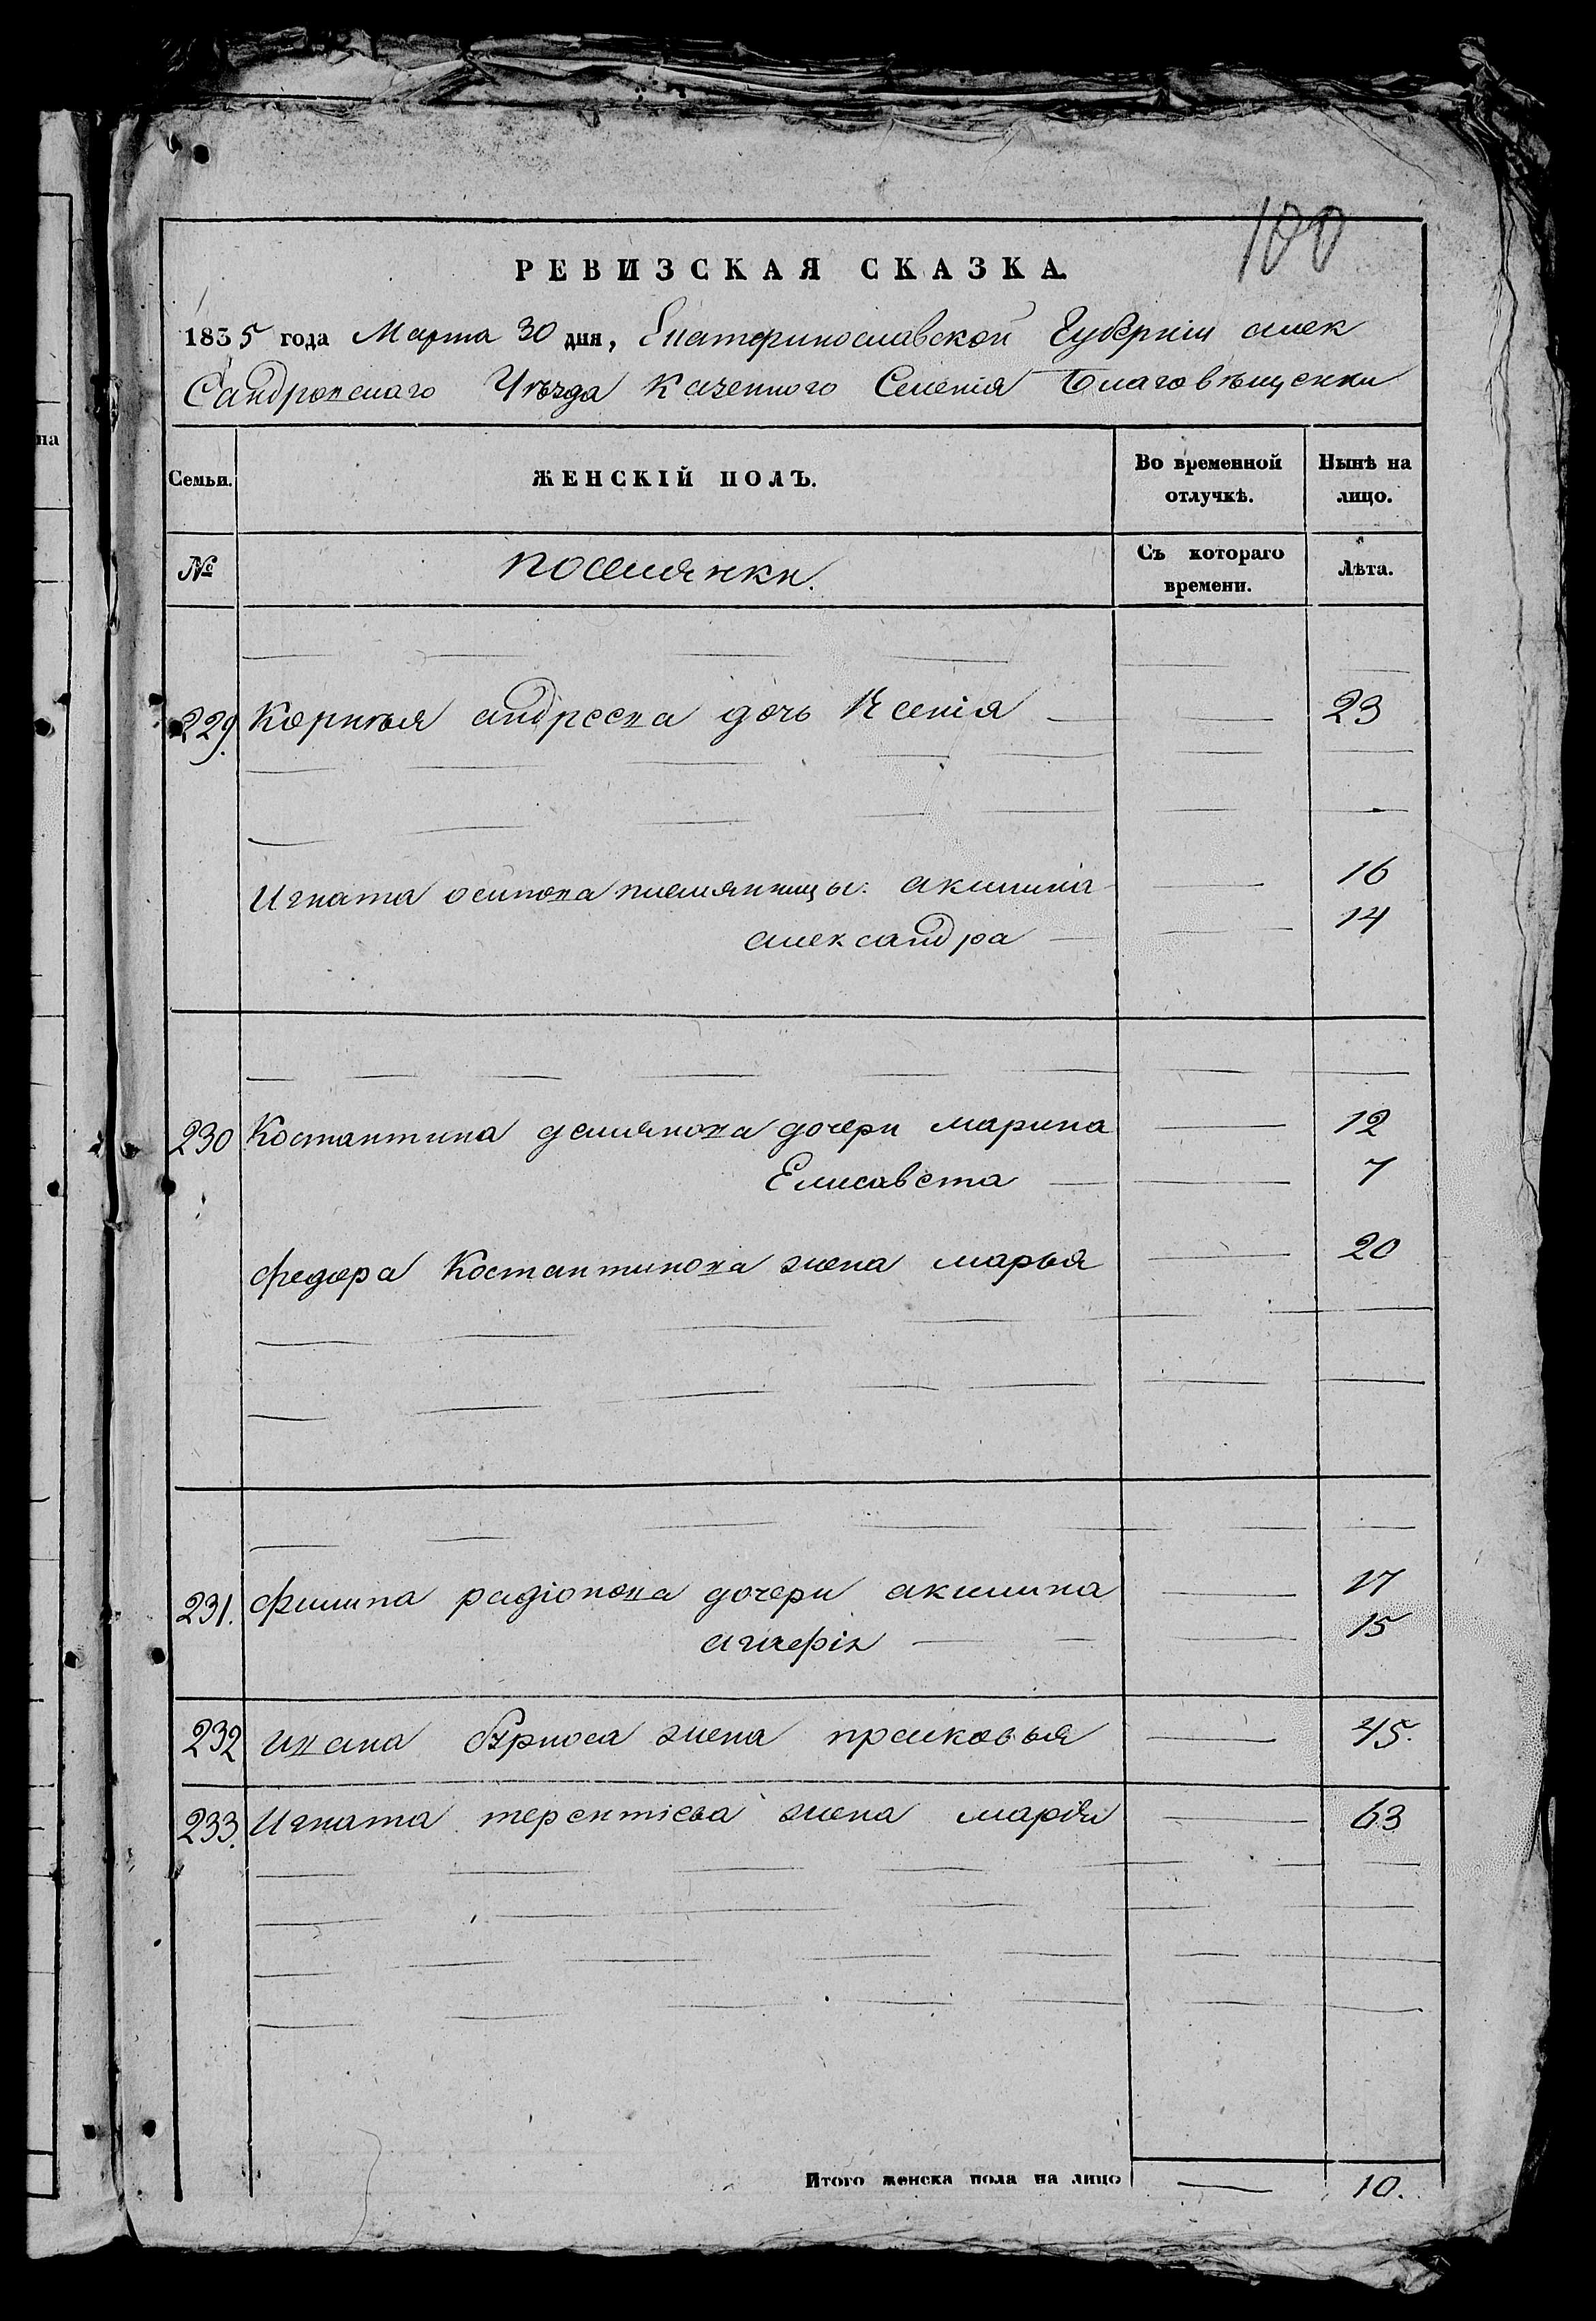 на
100
РЕВИЗСКАЯ СКАЗКА.
1835 года Марта 30 дня, Екатеринославской Губерніи алек
Сандровскаго Уѣзда Казенного Селенія Благовѣщенки
Семьи. ЖЕНСКІЙ ПОЛЪ. Во временной отлучкѣ. Нынѣ на лицо.
№ поселянки. Съ котораго времени. Лѣта.
229. Корнѣя андреева дочь Ксенія 23
Игната осипова племянницы: акилина 16
александра 14
230 Костантина демянова дочери марина 12
Елисавета 7
федора Костантинова жена марья 20
231. филипа радіонова дочери акилина 17
агафія 15
232 ивана жена прасковья 45.
233. Игната терентіева жена марія 63
Итого женска пола на лицо 10.